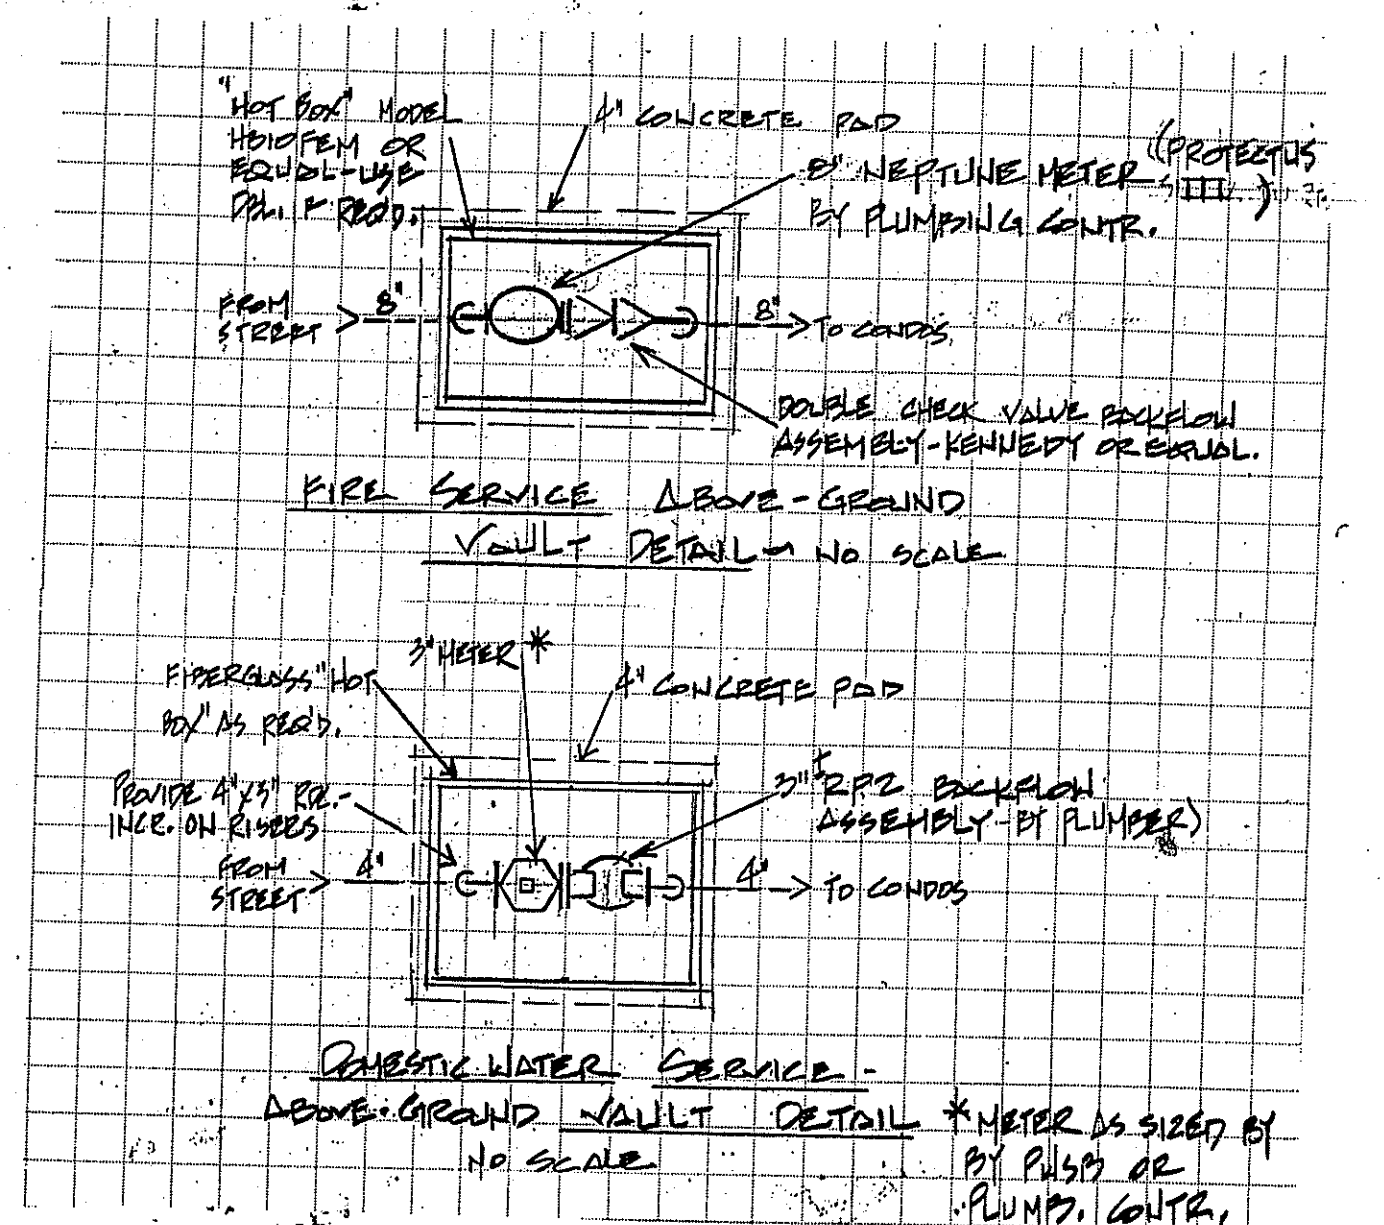 "HOT BOX" MODEL
HB10FEM OR
EQUAL-USE
DBL. IF REQ'D.
4" CONCRETE PAD
8" NEPTUNE METER (PROTECTUS
III )
BY PLUMBING CONTR.
FROM
STREET
8"
8"
TO CONDOS
DOUBLE CHECK VALVE BACKFLOW
ASSEMBLY-KENNEDY OR EQUAL.
FIRE SERVICE ABOVE-GROUND
VAULT DETAIL - NO SCALE
3" METER *
FIBERGLASS "HOT
BOX" AS REQ'D.
4" CONCRETE PAD
PROVIDE 4"x3" RDC.-
INCR. ON RISERS
3"± RPZ BACKFLOW
ASSEMBLY-BY PLUMBER)
FROM
STREET
4"
4"
TO CONDOS
DOMESTIC WATER SERVICE -
ABOVE-GROUND VAULT DETAIL
NO SCALE
* METER AS SIZED BY
BY PWSB OR
PLUMB. CONTR.